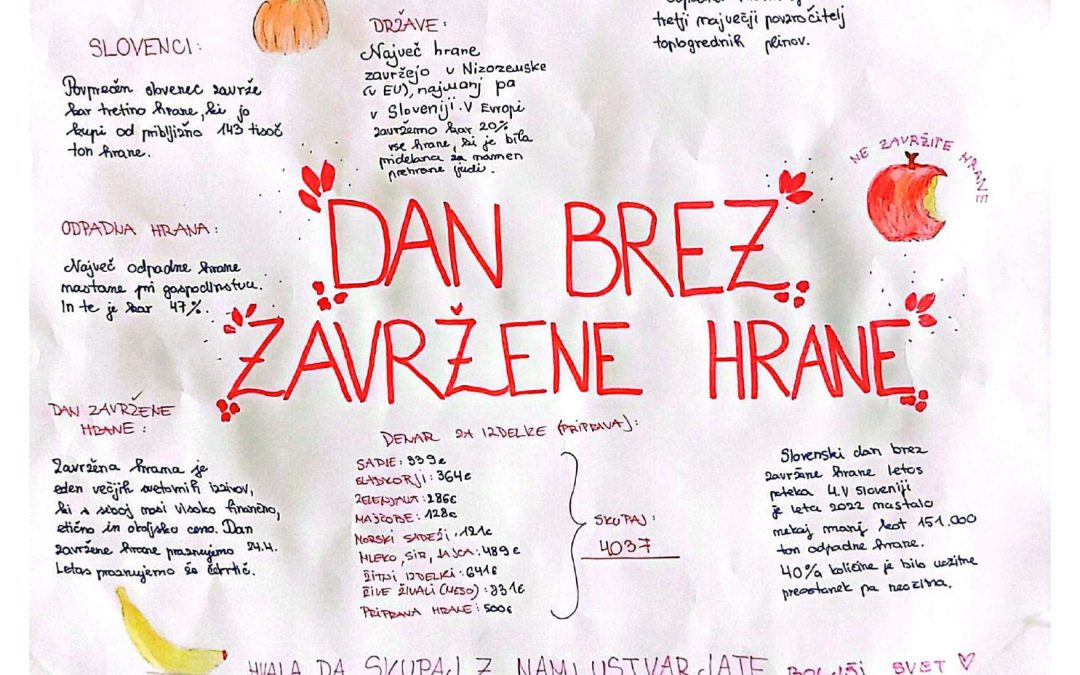 SLOVENCI:
Povprečen slovenec zavrže
kar tretino hrane, ki jo
kupi od približno 143 tisoč
ton hrane.
DRŽAVE:
Največ hrane
zavržejo v Nizozemske
(v EU), najmanj pa
v Sloveniji. V Evropi
zavržemo kar 20%
vse hrane, ki je bila
pridelana za namen
prehrane ljudi.
tretji največji povzročitelj
toplogrednih plinov.
NE ZAVRŽITE HRANE
ODPADNA HRANA:
Največ odpadne hrane
nastane pri gospodinstvu.
In te je kar 47%.
DAN BREZ
ZAVRŽENE HRANE
DAN ZAVRŽENE
HRANE:
Zavržena hrana je
eden večjih svetovnih izzivov,
ki s seboj nosi visoko finančno,
etično in okoljsko ceno. Dan
zavržene hrane praznujemo 24.4.
Letos praznujemo že četrtič.
DENAR ZA IZDELKE (PRIPRAVA):
SADJE: 939€
SLADKORJI: 364€
ZELENJAVA: 286€
MAŠČOBE: 128€
MORSKI SADEŽI: 121€
MLEKO, SIR, JAJCA: 489€
ŽITNI IZDELKI: 641€
ŽIVE ŽIVALI (MESO): 831€
PRIPRAVA HRANE: 500€
SKUPAJ:
4037
Slovenski dan brez
zavržene hrane letos
poteka 4. V Sloveniji
je leta 2022 nastalo
nekaj manj kot 151.000
ton odpadne hrane.
40% količine je bilo užitne
preostanek pa neužitna.
HVALA DA SKUPAJ Z NAMI USTVARJATE BOLJŠI SVET ♡